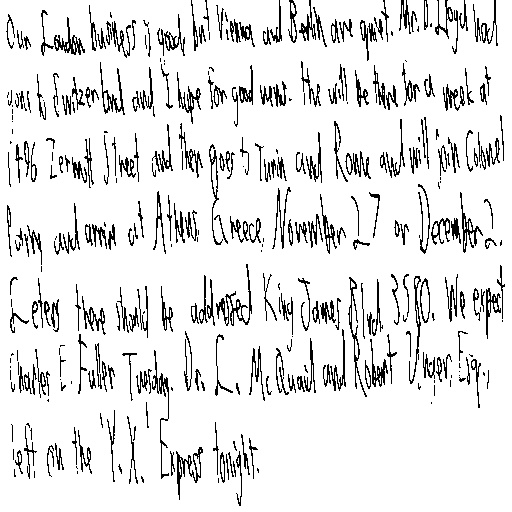 Our London business is good, but Vienna and Berlin are quiet. Mr. D. Lloyd had
gone to Switzerland and I hope for good news. He will be there for a week at
1496 Zermott Street and then goes to Turin and Rome and will join Colonel
Parry and arrive at Athens, Greece, November 27 or December 2.
Letters there should be addressed King James Blvd. 3580. We expect
Charles E. Fuller Tuesday. Dr. L. McQuaid and Robert Unger, Esq.,
left on the 'Y.X.' Express tonight.